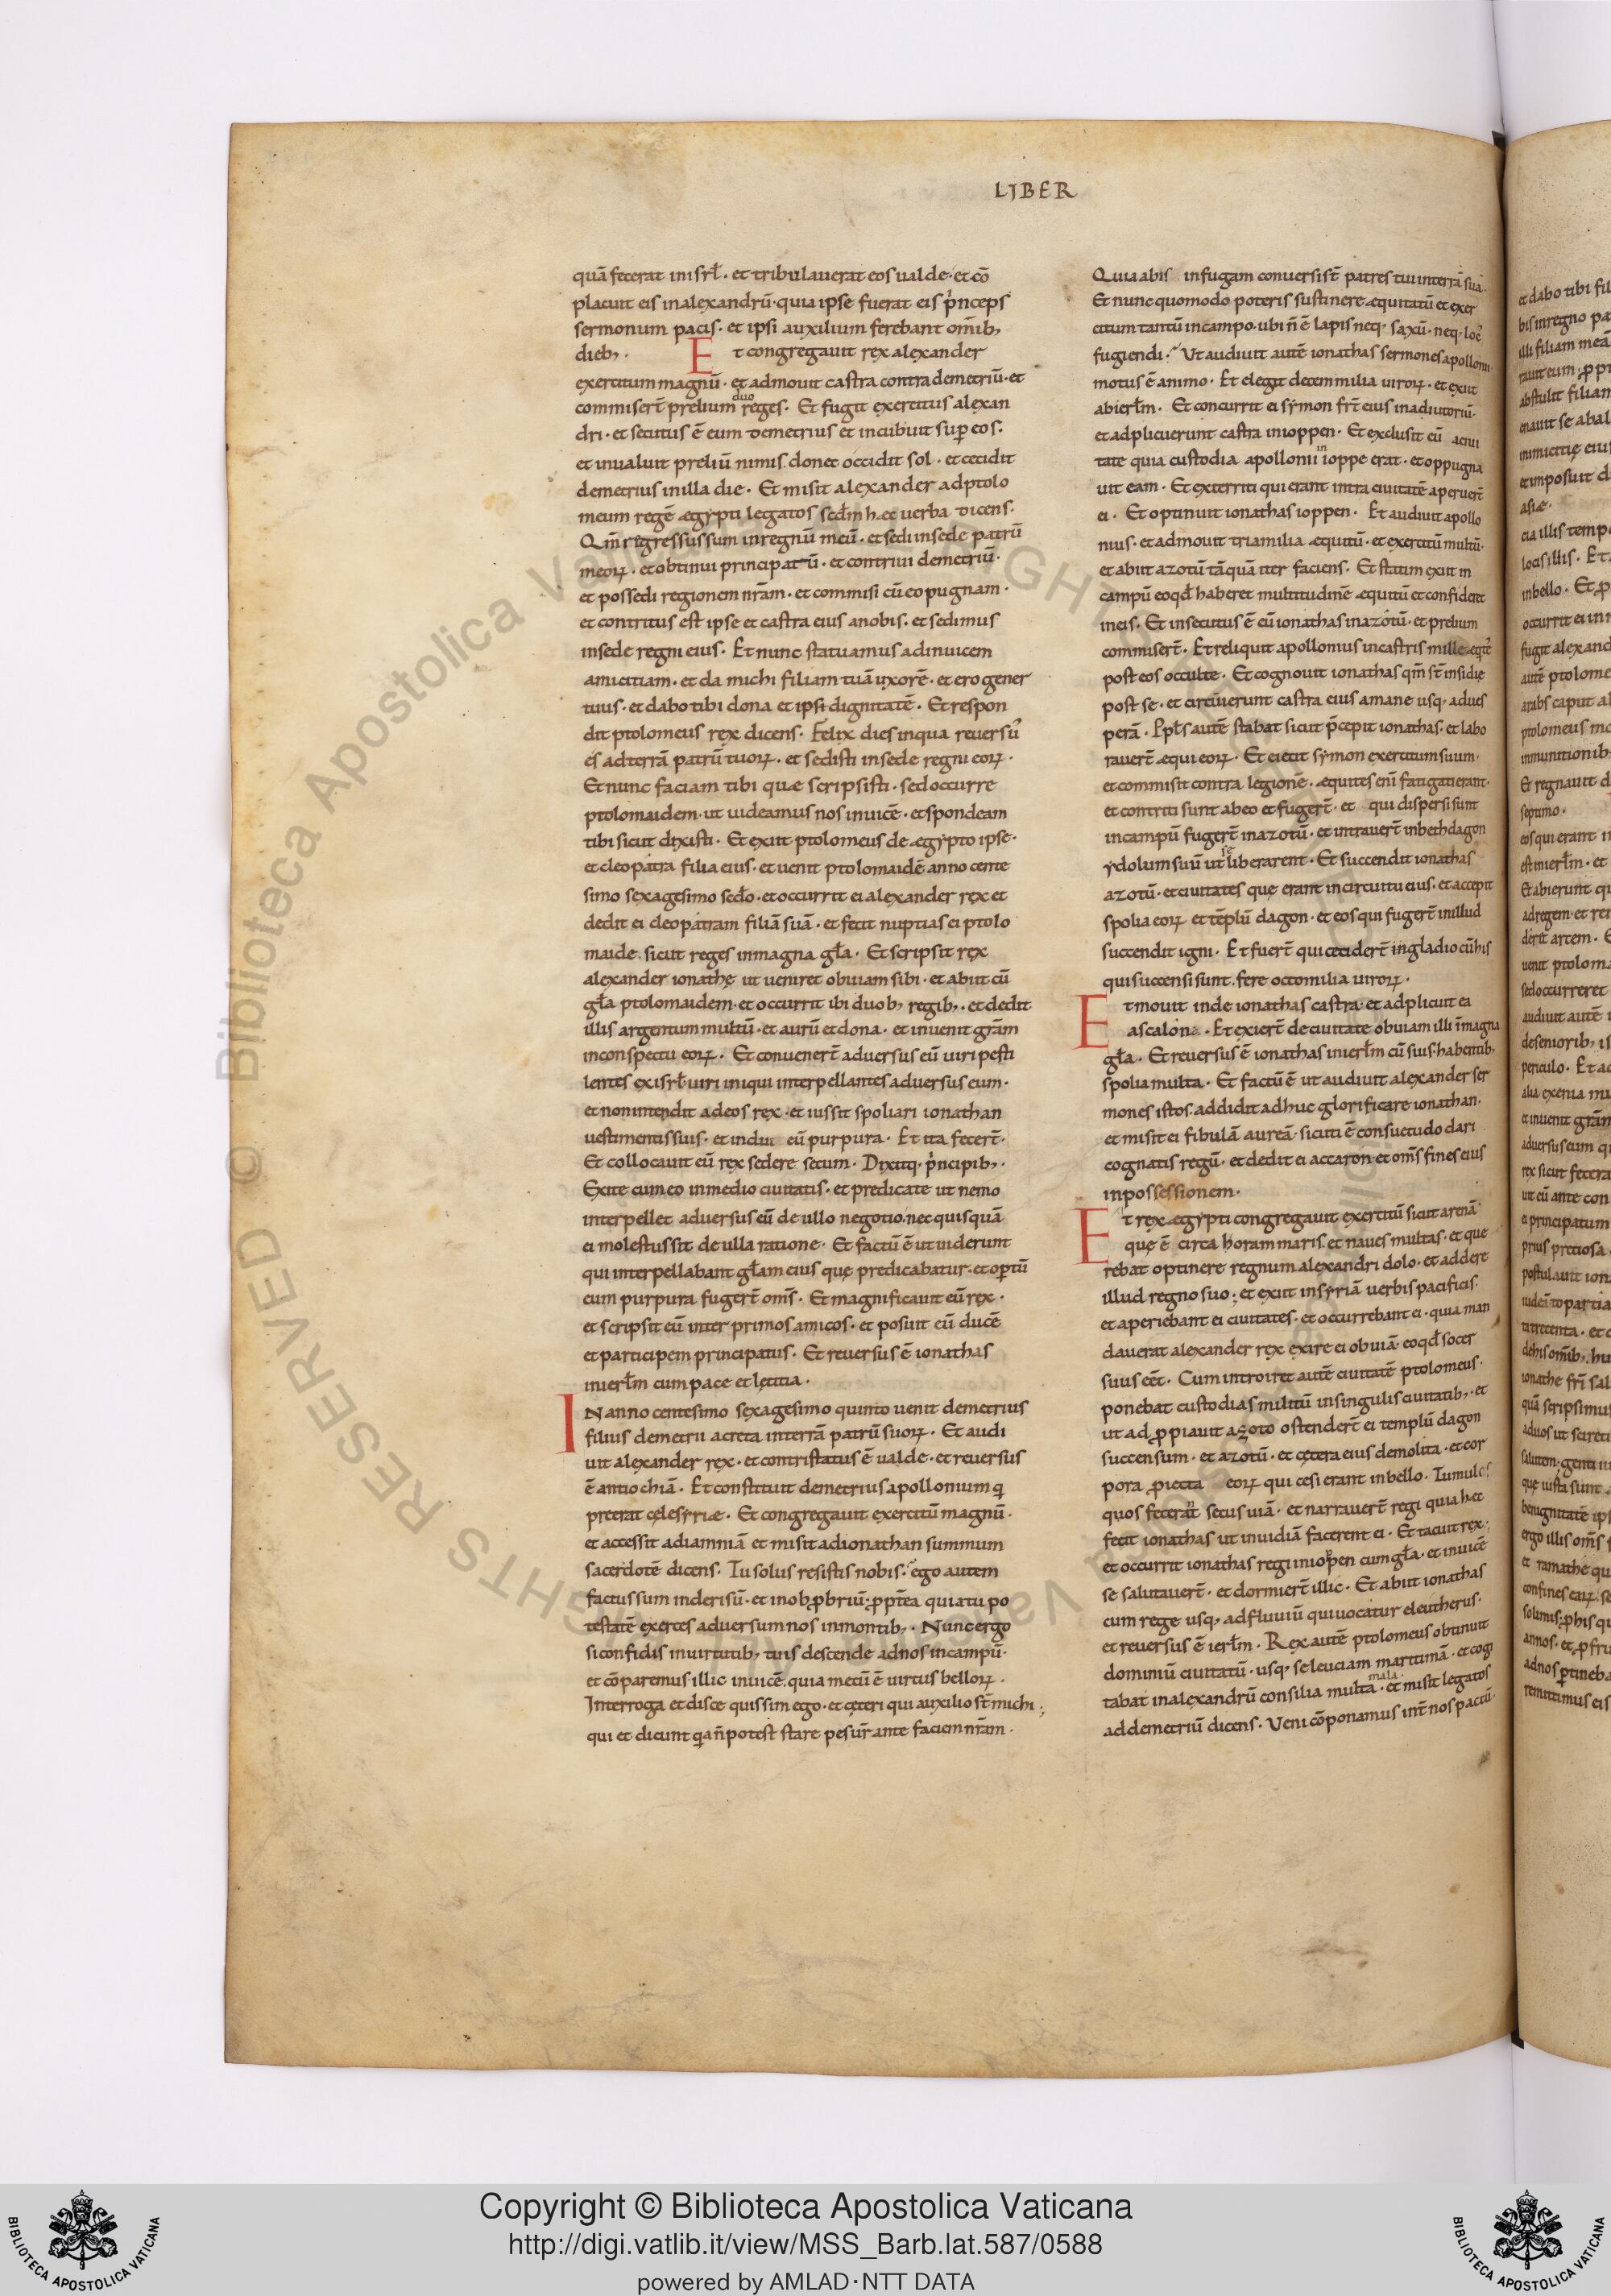 LIBER
quā fecerat inisrł · et tribulauerat eos ualde · et cō
placuit eis inalexandrū · quia ipse fuerat eis p̍nceps
sermonum pacis · et ipsi auxilium ferebant om̄ib;
dieb; · Et congregauit rex alexander
exercitum magnū · et admouit castra contra demetriū · et
duo
commiser̄t prelium reges · Et fugit exercitus alexan
dri · et secutus ē eum demetrius et incubuit sup̱ eos ·
et inualuit preliū nimis donec occidit sol · et cecidit
demetrius inilla die · Et misit alexander adptolo
meum regē ægypti legatos sed̄m hæc uerba dicens ·
Qm̄ regressus sum inregnū meū · et sedi insede patrū
meoꝝ · et obtinui principatū · et contriui demetriū ·
et possedi regionem nr̄am · et commisi cū eo pugnam ·
et contritus est ipse et castra eius anobis · et sedimus
insede regni eius · Et nunc statuamus adinuicem
amicitiam · et da michi filiam tuā uxorē · et ero gener
tuus · et dabo tibi dona et ipsi dignitatē · Et respon
dit ptolomeus rex dicens · Felix dies inqua reuersus
es adterrā patrū tuoꝝ · et sedisti insede regni eoꝝ ·
Et nunc faciam tibi quæ scripsisti · sed occurre
ptolomaidem · ut uideamus nos inuicē · et spondeam
tibi sicut dixisti · Et exiit ptolomeus de ægypto ipse ·
et cleopatra filia eius · et uenit ptolomaidē anno cente
simo sexagesimo sed̄o · et occurrit ei alexander rex et
dedit ei cleopatram filiā suā · et fecit nuptias ei ptolo
maide · sicut reges inmagna gła · Et scripsit rex
alexander ionathę ut ueniret obuiam sibi · et abiit cū
gła ptolomaidem · et occurrit ibi duob; regib; · et dedit
illis argentum multū · et aurū et dona · et inuenit gr̄am
inconspectu eoꝝ · Et conuener̄t aduersus eū uiri pesti
lentes exisrł uiri iniqui interpellantes aduersus eum ·
et non intendit adeos rex · et iussit spoliari ionathan
uestimentis suis · et indui eū purpura · Et ita fecer̄t ·
Et collocauit eū rex sedere secum · Dixitq · p̍ncipib; ·
Exite cum eo inmedio ciuitatis · et predicate ut nemo
interpellet aduersus eū de ullo negotio · nec quisquā
ei molestus sit de ulla ratione · Et factū ē ut uiderunt
qui interpellabant głam eius quę predicabatur · et op̱tū
cum purpura fuger̄t om̄s · Et magnificauit eū rex ·
et scripsit eū inter primos amicos · et posuit eū ducē
et participem principatus · Et reuersus ē ionathas
inierłm cum pace et lętitia ·
IN anno centesimo sexagesimo quinto uenit demetrius
filius demetrii acreta interrā patrū suoꝝ · Et audi
uit alexander rex · et contristatus ē ualde · et reuersus
ē antiochiā · Et constituit demetrius apollonium q
preerat cęlesyriæ · Et congregauit exercitū magnū ·
et accessit adiamniā et misit adionathan summum
sacerdotē dicens · Tu solus resistis nobis · ego autem
factus sum inderisū · et inob ꝓbriū · ꝓpt̄ea quia tu po
testatē exerces aduersum nos inmontib; · Nunc ergo
si confidis inuirtutib; tuis descende adnos incampū ·
et cōparemus illic inuicē quia mecū ē uirtus belloꝝ ·
Interroga et disce quis sim ego · et cęteri qui auxilio st̄ michi ;
qui et dicunt q̄a n̄ potest stare pes ur̄ ante faciem nr̄am ·
Quia abis infugam conuersi st̄ patres tui interrā suā ·
Et nunc quomodo poteris sustinere æquitatū et exer
citum tantū incampo · ubi n̄ ē lapis neq · saxū · neq · loc̍
fugiendi · Vt audiuit autē ionathas sermones apollonii
motus ē animo · Et elegit decem milia uiroꝝ · et exiit
abierłm · Et concurrit ei symon fr̄t eius inadiutoriū ·
et adplicuerunt castra inioppen · Et exclusit eū aciui
in
tate quia custodia apollonii ioppe erat · et oppugna
uit eam · Et exterriti qui erant intra ciuitatē aperuer̄t
ei · Et optinuit ionathas ioppen · Et audiuit apollo
nius · et admouit triamilia æquitū · et exercitū multū ·
et abiit azotū tāquā iter faciens · Et statim exiit in
campū eoqd̄ haberet multitudinē æquitū et confideret
ineis · Et insecutus ē eū ionathas inazotū · et prelium
commiser̄t · Et reliquit apollonius incastris mille æqte̍
post eos occulte · Et cognouit ionathas qm̄ st̄ insidię
post se · et circūierunt castra eius amane usq · adues
perā · Ppłs autē stabat sicut p̄cepit ionathas · et labo
rauer̄t æqui eoꝝ · Et eiecit symon exercitum suum ·
et commisit contra legionē · æquites eni̅ fatigati erant ·
et contriti sunt abeo et fuger̄t · et qui dispersi sunt
incampū fuger̄t inazotū · et intrauer̄t inbethdagon
se
ydolum suū ut liberarent · Et succendit ionathas
azotū · et ciuitates quę erant incircuitu eius · et accepit
spolia eoꝝ et tēplū dagon · et eos qui fuger̄t inillud
succendit igni · Et fuer̄t qui cecider̄t ingladio cū his
qui succensi sunt · fere octomilia uiroꝝ ·
Et mouit inde ionathas castra · et adplicuit ea
ascalona · Et exier̄t deciuitate obuiam illi īmagna
gła · Et reuersus ē ionathas inierłm cū suis · habentib·
spolia multa · Et factū ē ut audiuit alexander ser
mones istos · addidit adhuc glorificare ionathan ·
et misit ei fibulā aureā · sicuti ē consuetudo dari
cognatis regū · et dedit ei accaron et om̄s fines eius
inpossessionem ·
Et rex ægypti congregauit exercitū sicut arenā
quę ē circa horam maris · et naues multas · et quę
rebat optinere regnum alexandri dolo · et addere
illud regno suo ; et exiit insyriā uerbis pacificis ·
et aperiebant ei ciuitates · et occurrebant ei · quia man
dauerat alexander rex exire ei obuiā · eoqd̄ socer
suus eēt · Cum introiret autē ciuitatē ptolomeus ·
ponebat custodias militū insingulis ciuitatib; · et
ut ad ꝓpiauit azoto ostender̄t ei templū dagon
succensum · et azotū · et cętera eius demolita · et cor
pora ꝓiecta eoꝝ qui cesi erant inbello · Tumulos
quos fecerāt secus uiā · et narrauer̄t regi quia hæc
fecit ionathas ut inuidiā facerent ei · Et tacuit rex ·
et occurrit ionathas regi inioppen cum gła · et inuicē
se salutauer̄t · et dormier̄t illic · Et abiit ionathas
cum rege usq · adfluuiū qui uocatur eleutherus ·
et reuersus ē ierłm · Rex autē ptolomeus obtinuit
dominiū ciuitatū · usq · seleuciam maritimā · et cogi
mala
tabat inalexandrū consilia multa · et misit legatos
addemetriū dicens · Veni cōponamus int̄ nos pactū ·
Copyright © Biblioteca Apostolica Vaticana
http://digi.vatlib.it/view/MSS_Barb.lat.587/0588
powered by AMLAD·NTT DATA
BIBLIOTECA APOSTOLICA VATICANA
BIBLIOTECA APOSTOLICA VATICANA